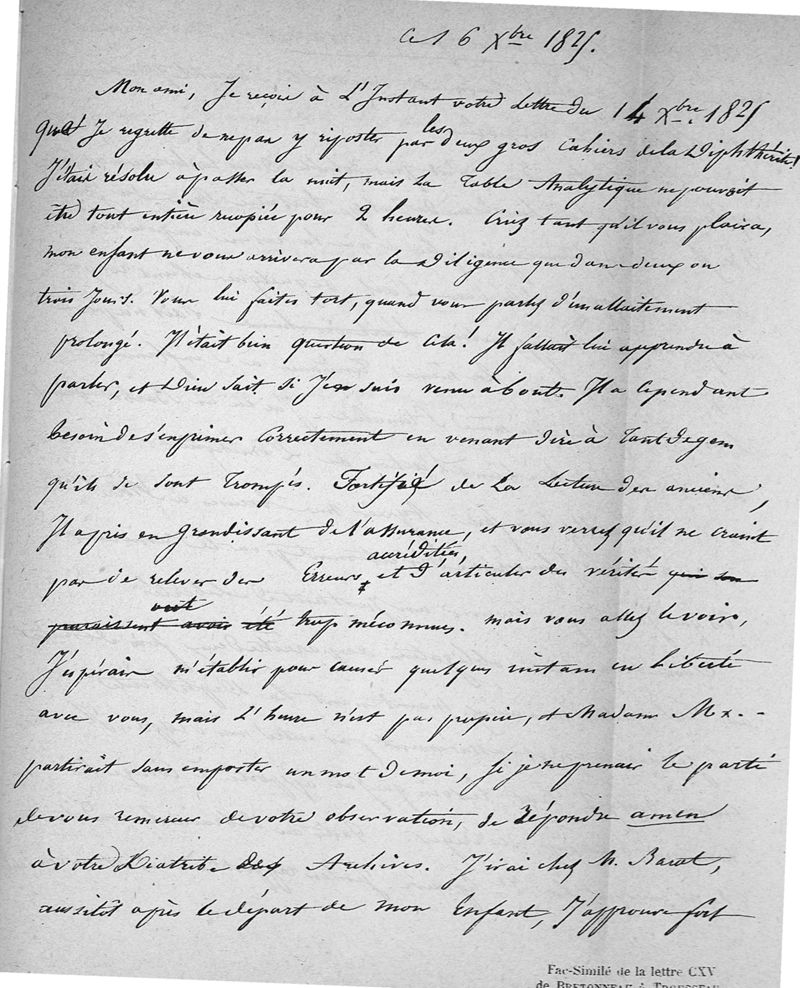 Ce 16 Xbre 1825.
Mon ami, Je reçois à L'Instant votre Lettre du 14 Xbre. 1825
que Je regrette de ne pas y riposter par les deux gros Cahiers de la Diphthérite!
J'étais résolu à passer la nuit, mais La Table Analytique ne pouvait
être tout entière recopiée pour 2 heures. Criez tant qu'il vous plaira,
mon enfant ne vous arrivera par la Diligence que dans deux ou
trois Jours. Vous lui faites tort, quand vous parlez d'un allaitement
prolongé. Il était bien question de cela! Il fallait lui apprendre à
parler, et Dieu sait si J'en suis venu à bout. Il a cependant
besoin de s'exprimer Correctement en venant dire à tant de gens
qu'ils se sont trompés. Fortifié de La Lecture des anciens,
Il a pris en grandissant de l'assurance, et vous verrez qu'il ne craint
pas de relever des Erreurs accréditées, et d'articuler des vérités qui
paraissent avoir été ont trop méconnues. mais vous allez le voir,
J'espérais m'établir pour causer quelques instans en liberté
avec vous, mais L'heure n'est pas propice, et Madame Mx.-
partirait sans emporter un mot de moi, si je ne prenais le parti
de vous remercier de votre observation, de répondre amen
à votre Diatribe des Archives. J'irai chez M. Barat,
aussitôt après le départ de mon Enfant, J'approuve fort
Fac-Similé de la lettre CXV
de BRETONNEAU à TROUSSEAU